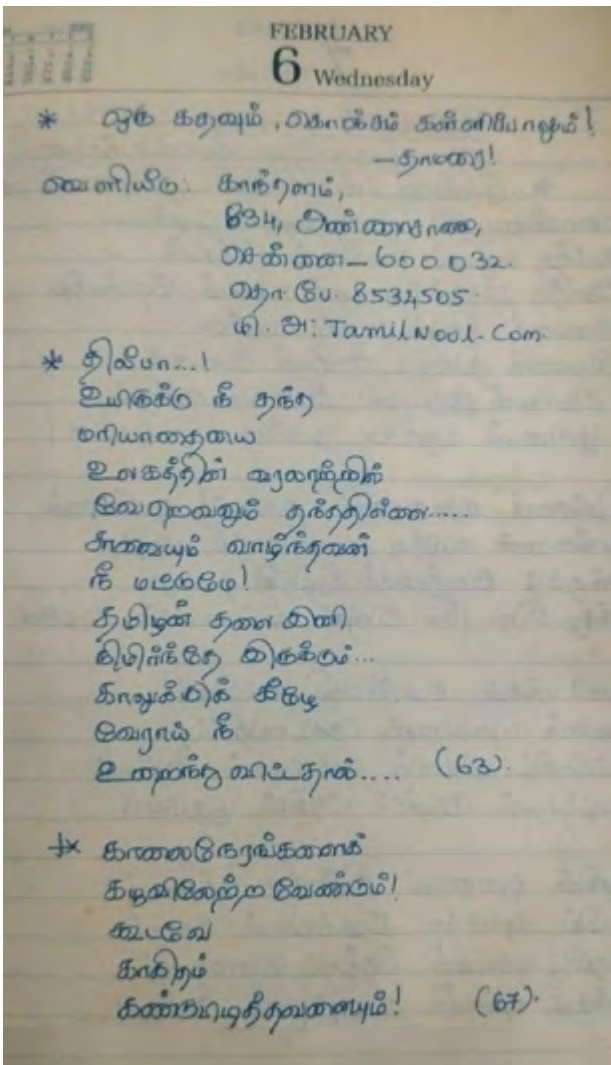 FEBRUARY
6 Wednesday
* ஒரு கதவும், கொஞ்சம் கள்ளிப்பாலும்!
– தாமரை!
வெளியீடு: காந்தளம்,
834, அண்ணாசாலை,
சென்னை – 600 032.
தொ.பே. 8534505.
மி. அ: TamilNool.Com.
* திலீபா...!
உயிருக்கு நீ தந்த
மரியாதையை
உலகத்தின் வரலாற்றில்
வேறெவனும் தந்ததில்லை.....
சாவையும் வாழ்ந்தவன்
நீ மட்டுமே!
தமிழன் தலை இனி
நிமிர்ந்தே இருக்கும்...
காலுக்குக் கீழே
வேராய் நீ
உறைந்து விட்டதால்.... (63).
* காலைநேரங்களைக்
கழுவிலேற்ற வேண்டும்!
கூடவே
காகிதம்
கண்டுபிடித்தவனையும்! (67).